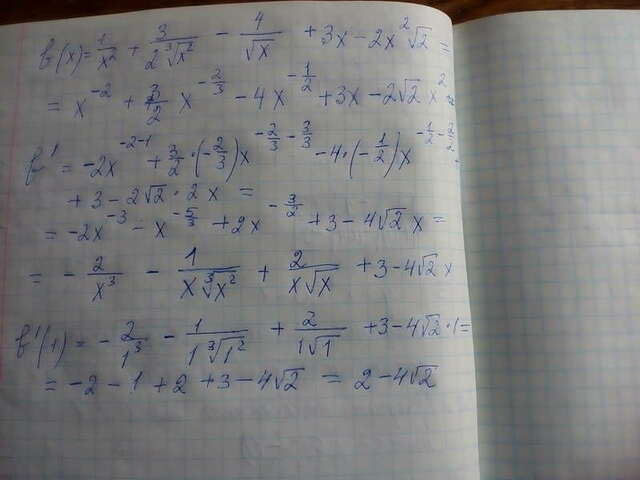 f(x) = 1/x² + 3/(2∛x²) - 4/√x + 3x - 2x²√2 =
= x^(-2) + 3/2 x^(-2/3) - 4x^(-1/2) + 3x - 2√2 x² =
f' = -2x^(-2-1) + 3/2 · (-2/3)x^(-2/3 - 3/3) - 4 · (-1/2)x^(-1/2 - 2/2) +
+ 3 - 2√2 · 2x =
= -2x^(-3) - x^(-5/3) + 2x^(-3/2) + 3 - 4√2 x =
= - 2/x³ - 1/(x∛x²) + 2/(x√x) + 3 - 4√2 x
f'(1) = - 2/1³ - 1/(1∛1²) + 2/(1√1) + 3 - 4√2 · 1 =
= -2 - 1 + 2 + 3 - 4√2 = 2 - 4√2